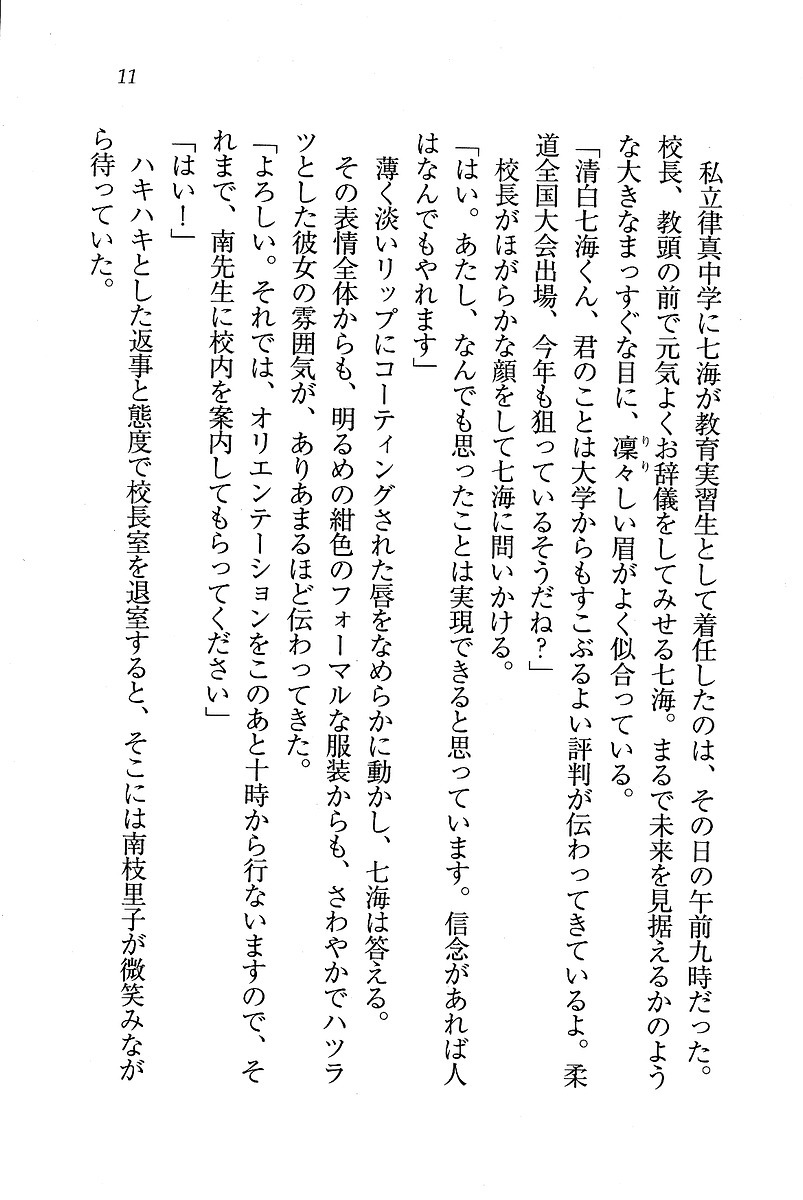 11
私立律真中学に七海が教育実習生として着任したのは、その日の午前九時だった。
校長、教頭の前で元気よくお辞儀をしてみせる七海。まるで未来を見据えるかのよう
な大きなまっすぐな目に、凜々しい眉がよく似合っている。
りり
「清白七海くん、君のことは大学からもすこぶるよい評判が伝わってきているよ。柔
道全国大会出場、今年も狙っているそうだね？」
校長がほがらかな顔をして七海に問いかける。
「はい。あたし、なんでも思ったことは実現できると思っています。信念があれば人
はなんでもやれます」
薄く淡いリップにコーティングされた唇をなめらかに動かし、七海は答える。
その表情全体からも、明るめの紺色のフォーマルな服装からも、さわやかでハツラ
ツとした彼女の雰囲気が、ありあまるほど伝わってきた。
「よろしい。それでは、オリエンテーションをこのあと十時から行ないますので、そ
れまで、南先生に校内を案内してもらってください」
「はい！」
ハキハキとした返事と態度で校長室を退室すると、そこには南枝里子が微笑みなが
ら待っていた。